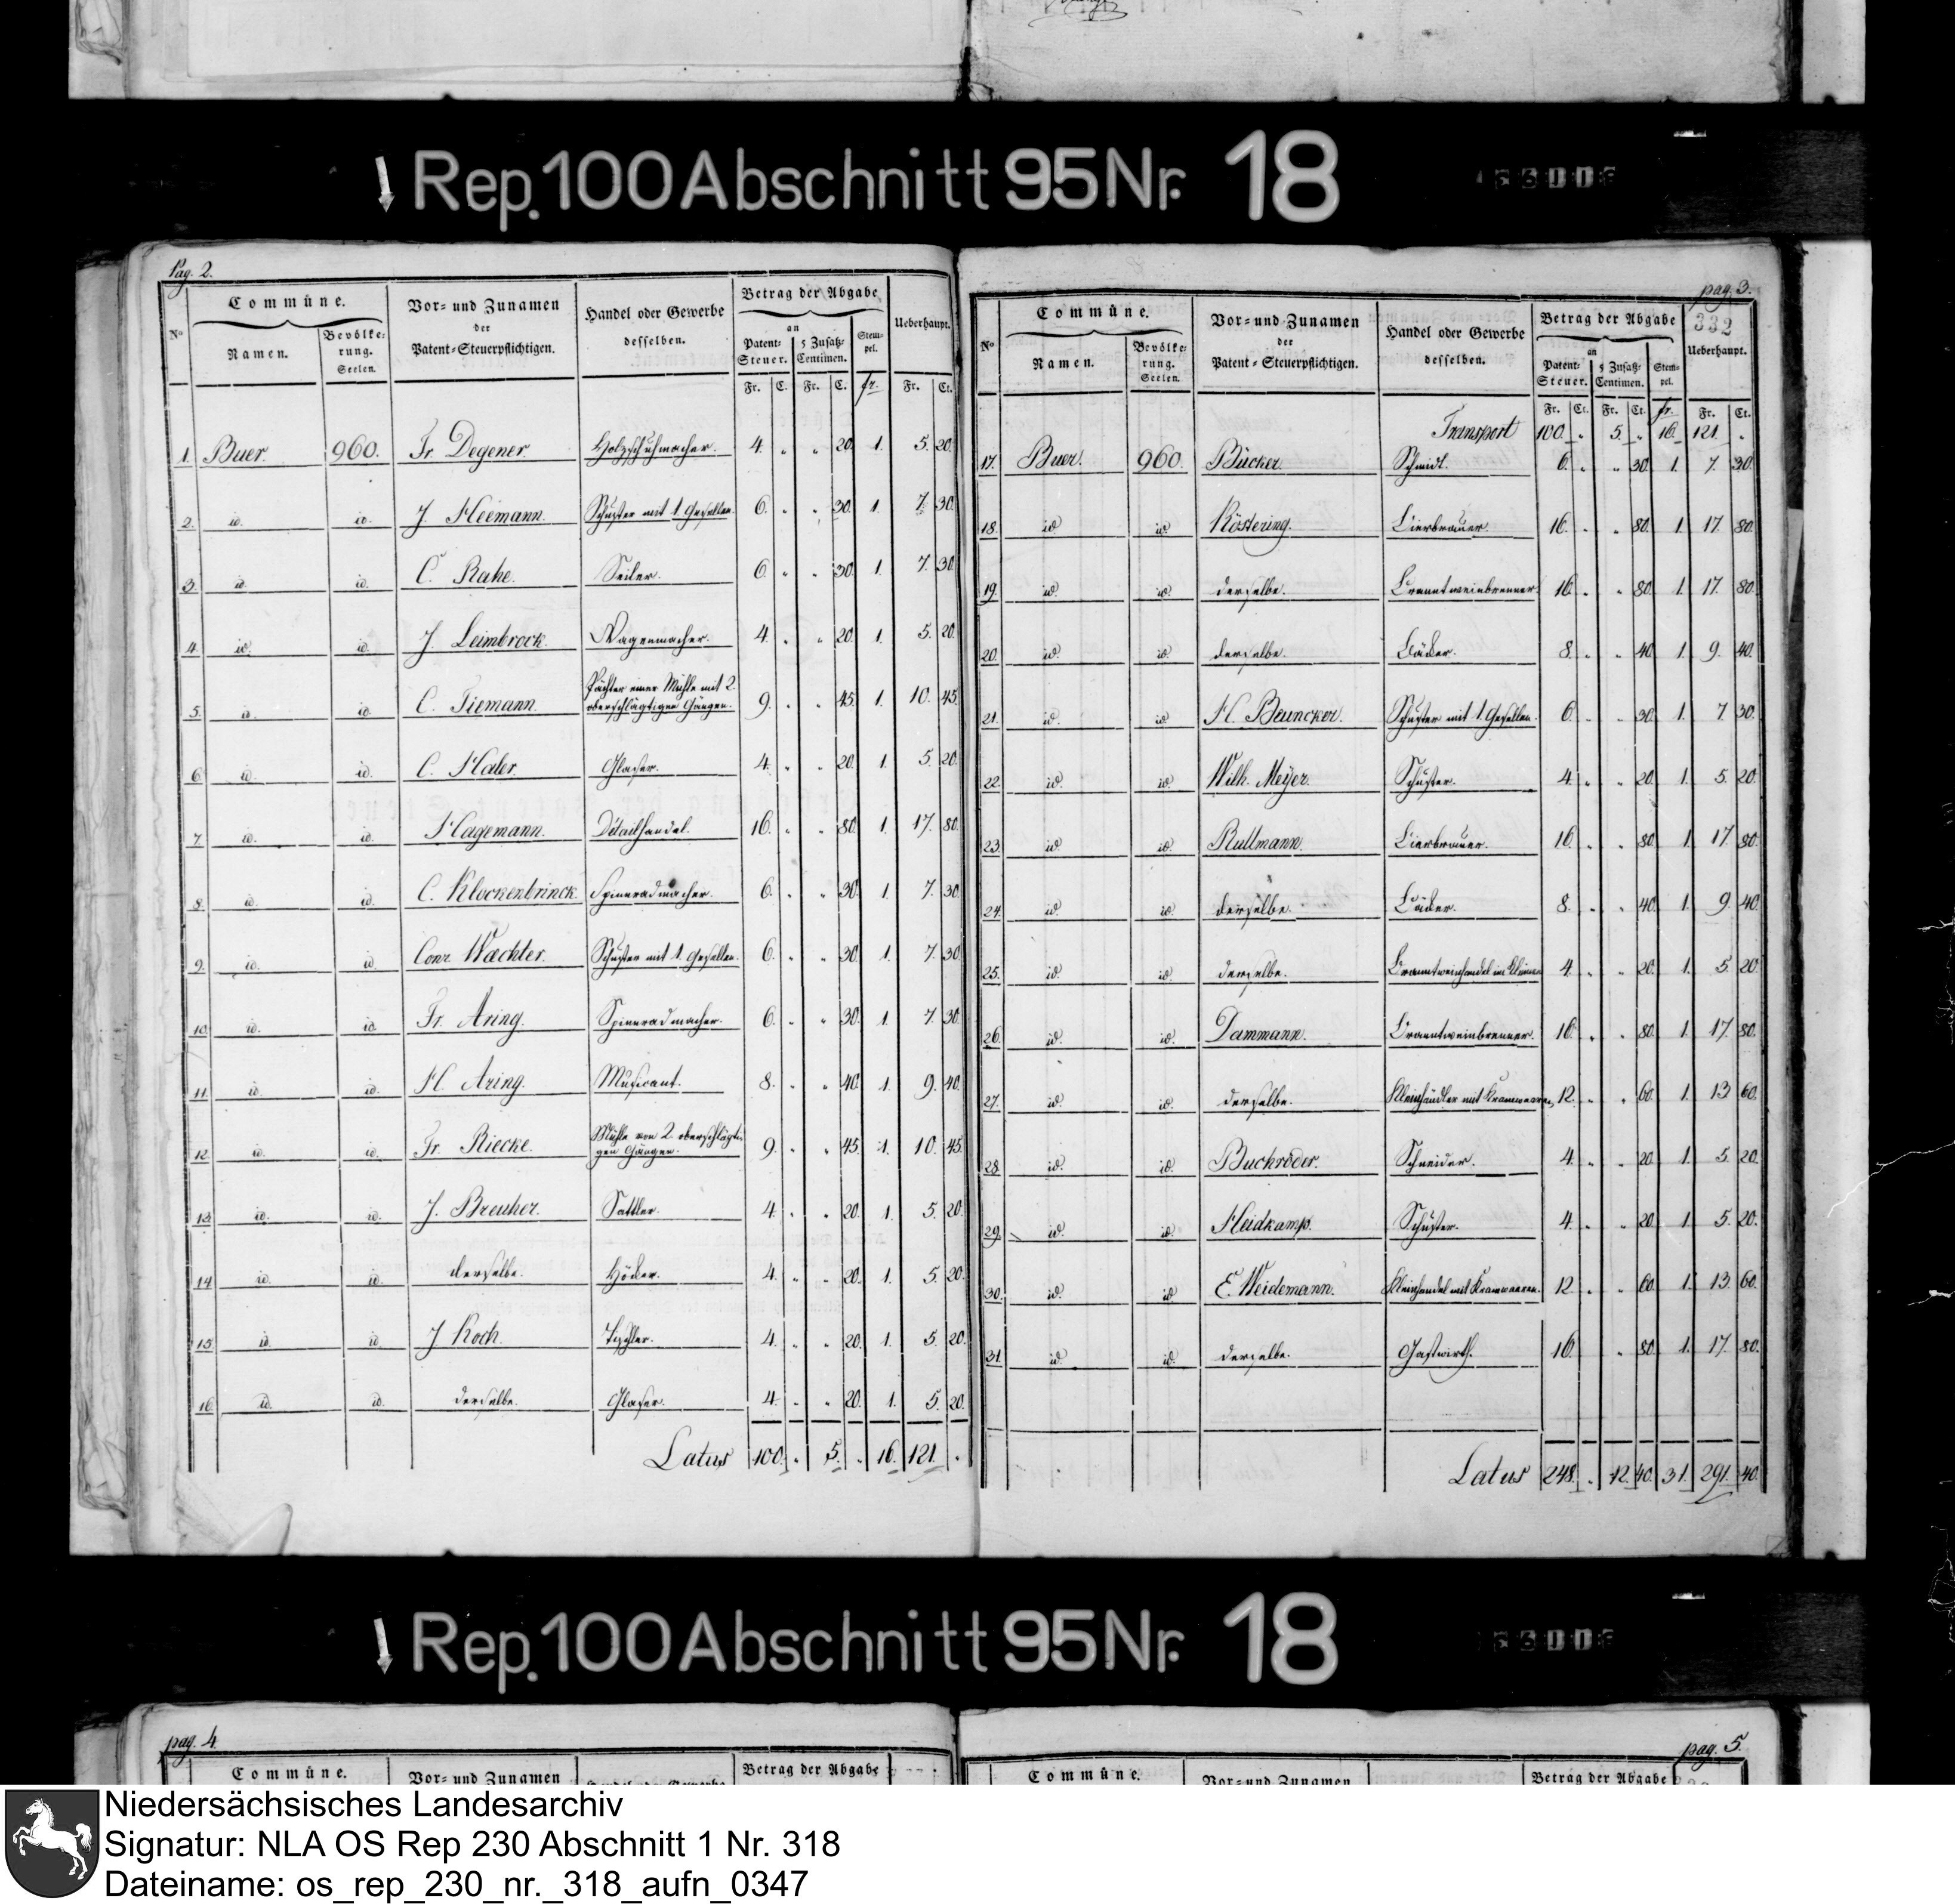 Rep. 100 Abschnitt 95 Nr. 18
Pag. 2.
Nº
Commüne.
Namen.
Bevölke-
rung.
Seelen.
Vor- und Zunamen
der
Patent-Steuerpflichtigen.
Handel oder Gewerbe
desselben.
Betrag der Abgabe
an
Patent-
Steuer.
5 Zusatz-
Centimen.
Stem-
pel.
Ueberhaupt.
Fr. C. Fr. C. fr. Fr. Ct.
1. Buer. 960. Fr. Degener Holzschuhmacher. 4. " " 20. 1. 5. 20.
2. id. id. J. Heemann. Schuster mit 1. Gesellen. 6. " " 30. 1. 7. 30.
3. id. id. C. Rahe. Seiler. 6. " " 30. 1. 7. 30.
4. id. id. J. Leimbrock. Wagenmacher. 4. " " 20. 1. 5. 20.
5. id. id. C. Tiemann. Pächter einer Mühle mit 2
oberschlägtigen Gängen. 9. " " 45. 1. 10. 45.
6. id. id. C. Haler. Glaser. 4. " " 20. 1. 5. 20.
7. id. id. Hagemann. Détailhandel. 16. " " 80. 1. 17. 80.
8. id. id. C. Klockenbrinck. Spinnradmacher. 6. " " 30. 1. 7. 30.
9. id. id. Conr. Waechter. Schuster mit 1. Gesellen. 6. " " 30. 1. 7. 30.
10. id. id. Fr. Aring. Spinnradmacher. 6. " " 30. 1. 7. 30.
11. id. id. H. Aring. Musicant. 8. " " 40. 1. 9. 40.
12. id. id. Fr. Riecke. Mühle von 2. oberschlägti-
gen Gängen. 9. " " 45. 1. 10. 45.
13. id. id. J. Breuker. Sattler. 4. " " 20. 1. 5. 20.
14. id. id. derselbe. Höcker. 4. " " 20. 1. 5. 20.
15. id. id. J. Koch. Tischler. 4. " " 20. 1. 5. 20.
16. id. id. derselbe. Glaser. 4. " " 20. 1. 5. 20.
Latus 100. " 5. " 16. 121. "
pag. 3.
332
Nº
Commüne.
Namen.
Bevölke-
rung.
Seelen.
Vor- und Zunamen
der
Patent-Steuerpflichtigen.
Handel oder Gewerbe
desselben.
Betrag der Abgabe
an
Patent-
Steuer.
5 Zusatz-
Centimen.
Stem-
pel.
Ueberhaupt.
Fr. Ct. Fr. Ct. fr. Fr. Ct.
Transport 100. " 5. " 16. 121. "
17. Buer. 960. Bücker. Schmidt. 6. " " 30. 1. 7. 30.
18. id. id. Köstering. Bierbrauer. 16. " " 80. 1. 17. 80.
19. id. id. derselbe. Branntweinbrenner. 16. " " 80. 1. 17. 80.
20. id. id. derselbe. Bäcker. 8. " " 40. 1. 9. 40.
21. id. id. H. Beuncker. Schuster mit 1. Gesellen. 6. " " 30. 1. 7. 30.
22. id. id. Wilh. Meyer. Schuster. 4. " " 20. 1. 5. 20.
23. id. id. Rullmann. Bierbrauer. 16. " " 80. 1. 17. 80.
24. id. id. derselbe. Bäcker. 8. " " 40. 1. 9. 40.
25. id. id. derselbe. Branntweinhandel im Kleinen 4. " " 20. 1. 5. 20.
26. id. id. Dammann. Branntweinbrenner. 16. " " 80. 1. 17. 80.
27. id. id. derselbe. Kleinhändler mit Kramwaaren, 12. " " 60. 1. 13. 60.
28. id. id. Buchröder. Schneider. 4. " " 20. 1. 5. 20.
29. id. id. Heidkamp. Schuster. 4. " " 20. 1. 5. 20.
30. id. id. E. Weidemann. Kleinhandel mit Kramwaaren. 12. " " 60. 1. 13. 60.
31. id. id. derselbe. Gastwirth. 16. " 80. 1. 17. 80.
Latus 248. " 12. 40. 31. 291. 40.
Rep. 100 Abschnitt 95 Nr. 18
pag. 4.
Commüne.
Vor- und Zunamen
Betrag der Abgabe
pag. 5.
Commüne.
Vor- und Zunamen
Betrag der Abgabe
Niedersächsisches Landesarchiv
Signatur: NLA OS Rep 230 Abschnitt 1 Nr. 318
Dateiname: os_rep_230_nr._318_aufn_0347